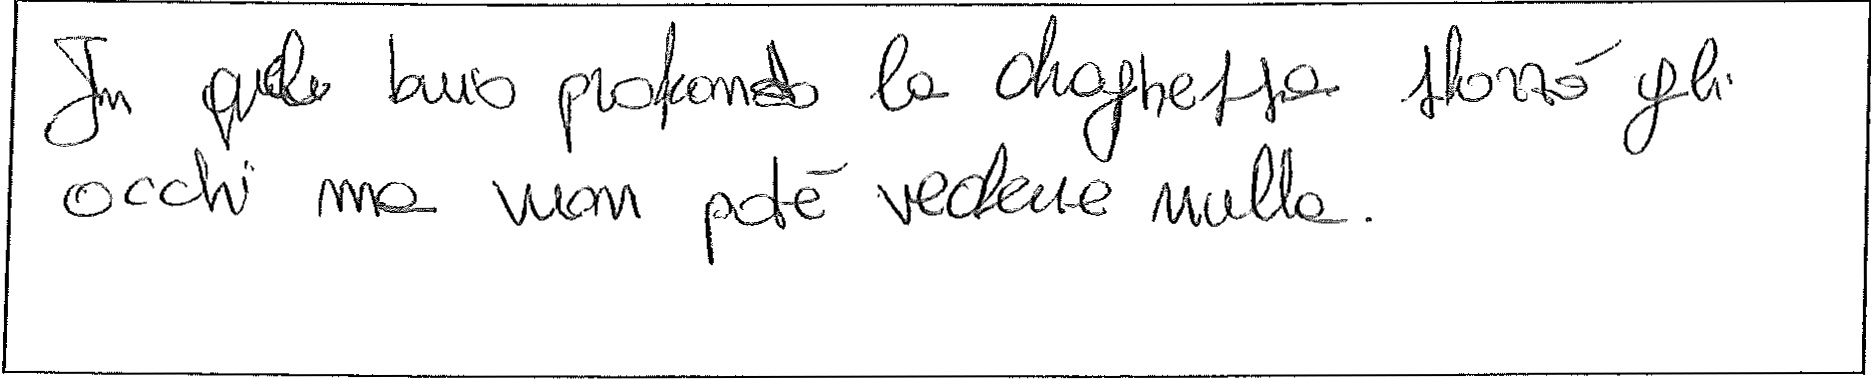 In quel buio profondo la draghetta sforzò gli
occhi ma non poté vedere nulla.